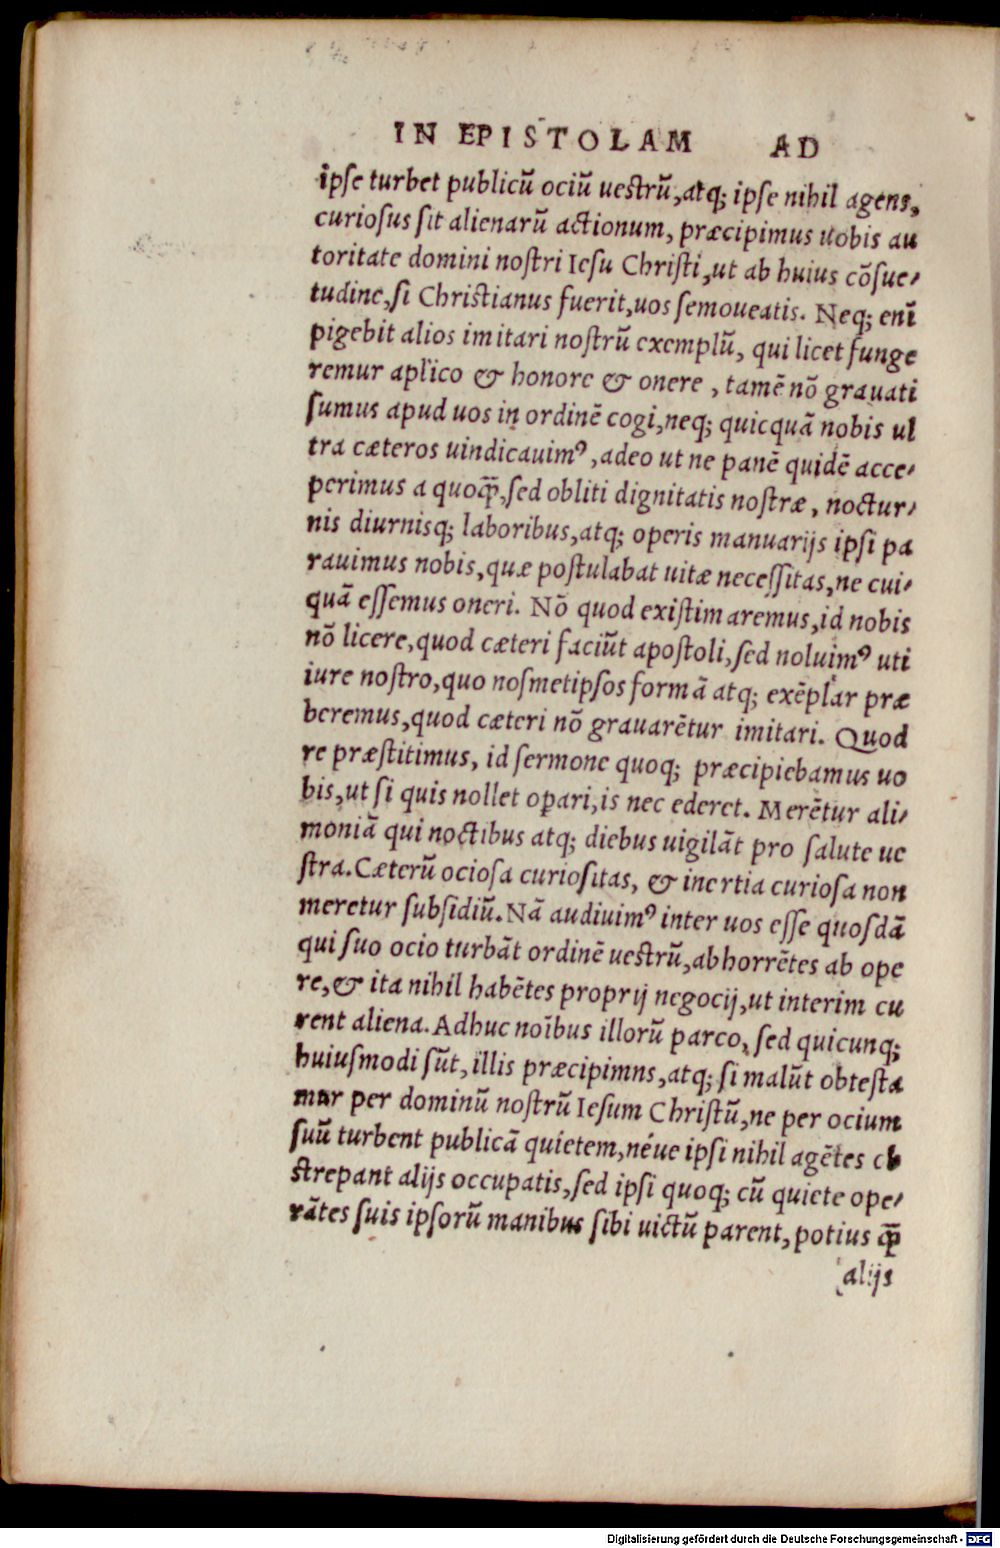 IN EPISTOLAM AD
ipse turbet publicũ ociũ uestrũ, atq; ipse nihil agens,
curiosus sit alienarũ actionum, præcipimus uobis au
toritate domini nostri Iesu Christi, ut ab huius cõsue-
tudine, si Christianus fuerit, uos semoueatis. Neq; enĩ
pigebit alios imitari nostrũ exemplũ, qui licet funge
remur ap̃lico & honore & onere, tamẽ nõ grauati
sumus apud uos in ordinẽ cogi, neq; quicquã nobis ul
tra cæteros uindicauimꝰ, adeo ut ne panẽ quidẽ acce-
perimus a quoq̃, sed obliti dignitatis nostræ, noctur-
nis diurnisq; laboribus, atq; operis manuarijs ipsi pa
rauimus nobis, quæ postulabat uitæ necessitas, ne cui-
quã essemus oneri. Nõ quod existimaremus, id nobis
nõ licere, quod cæteri faciũt apostoli, sed noluimꝰ uti
iure nostro, quo nosmetipsos formã atq; exẽplar præ
beremus, quod cæteri nõ grauarẽtur imitari. Quod
re præstitimus, id sermone quoq; præcipiebamus uo
bis, ut si quis nollet opari, is nec ederet. Merẽtur ali-
moniã qui noctibus atq; diebus uigilãt pro salute ue
stra. Cæterũ ociosa curiositas, & inertia curiosa non
meretur subsidiũ. Nã audiuimꝰ inter uos esse quosdã
qui suo ocio turbãt ordinẽ uestrũ, abhorrẽtes ab ope
re, & ita nihil habẽtes proprij negocij, ut interim cu
rent aliena. Adhuc noĩbus illorũ parco, sed quicunq;
huiusmodi sũt, illis præcipimns, atq; si malũt obtesta
mur per dominũ nostrũ Iesum Christũ, ne per ocium
suũ turbent publicã quietem, néue ipsi nihil agẽtes ob
strepant alijs occupatis, sed ipsi quoq; cũ quiete ope-
rãtes suis ipsorũ manibus sibi uictũ parent, potius q̃
alijs
Digitalisierung gefördert durch die Deutsche Forschungsgemeinschaft - DFG